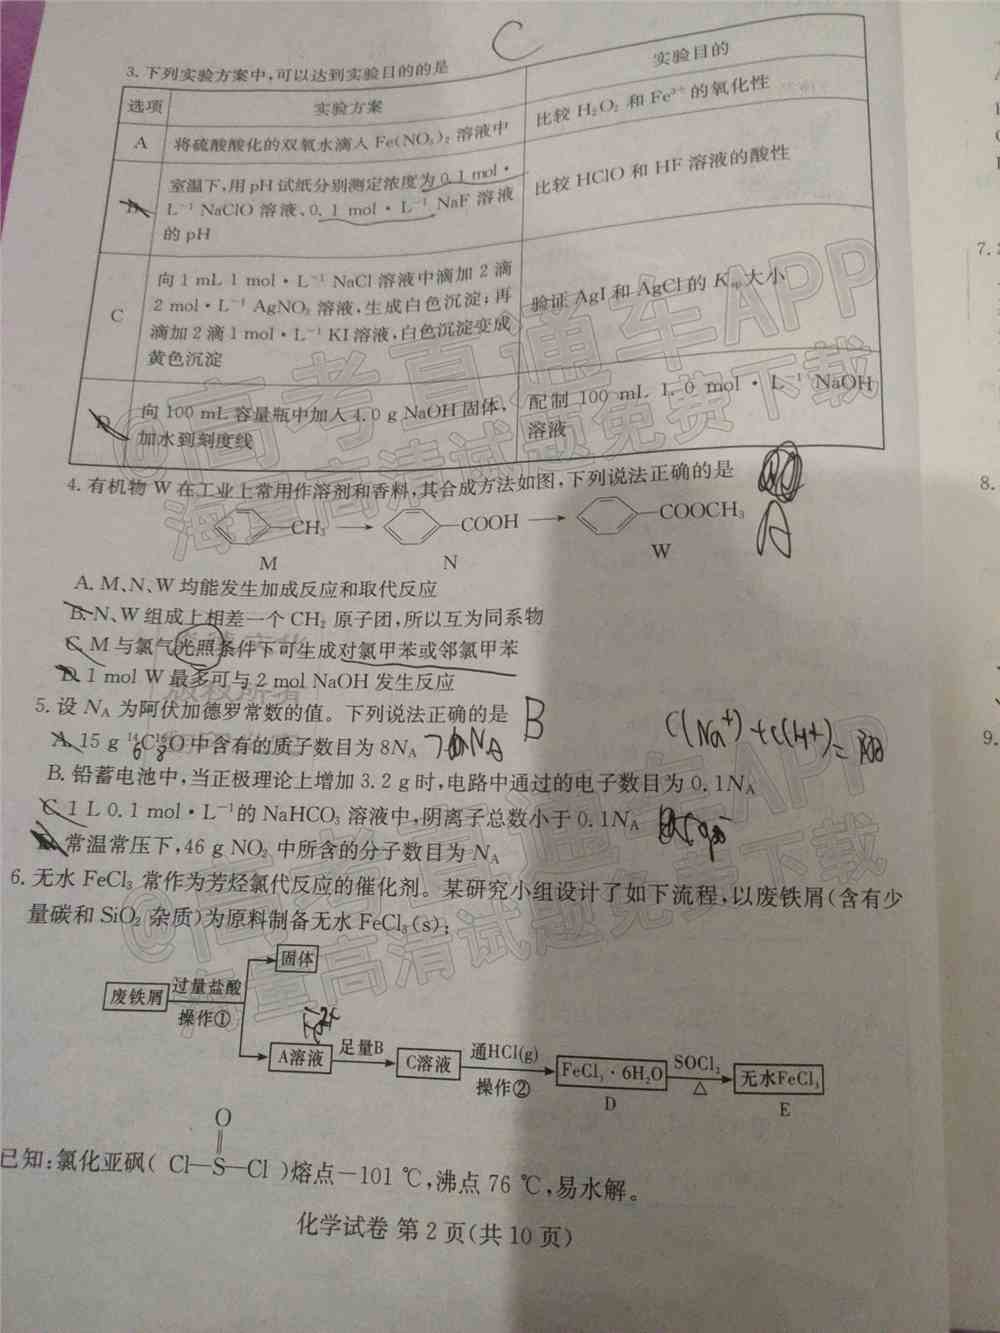 C
3.下列实验方案中,可以达到实验目的的是
选项 实验方案 实验目的
A 将硫酸酸化的双氧水滴入Fe(NO₃)₂溶液中 比较H₂O₂和Fe³⁺的氧化性
B 室温下,用pH试纸分别测定浓度为0.1 mol·
L⁻¹ NaClO溶液、0.1 mol·L⁻¹ NaF溶液
的pH
比较HClO和HF溶液的酸性
C 向1 mL 1 mol·L⁻¹ NaCl溶液中滴加2滴
2 mol·L⁻¹ AgNO₃溶液,生成白色沉淀;再
滴加2滴1 mol·L⁻¹ KI溶液,白色沉淀变成
黄色沉淀
验证AgI和AgCl的Ksp大小
D 向100 mL容量瓶中加入4.0 g NaOH固体,
加水到刻度线
配制100 mL 1.0 mol·L⁻¹ NaOH
溶液
4.有机物W在工业上常用作溶剂和香料,其合成方法如图,下列说法正确的是
A
CH₃ COOH COOCH₃
M N W
A.M、N、W均能发生加成反应和取代反应
B.N、W组成上相差一个CH₂原子团,所以互为同系物
C.M与氯气光照条件下可生成对氯甲苯或邻氯甲苯
D.1 mol W最多可与2 mol NaOH发生反应
5.设NA为阿伏加德罗常数的值。下列说法正确的是
B
C(Na⁺)+C(H⁺)=
A.15 g ¹⁴C¹⁶O中含有的质子数目为8NA
B.铅蓄电池中,当正极理论上增加3.2 g时,电路中通过的电子数目为0.1NA
C.1 L 0.1 mol·L⁻¹的NaHCO₃溶液中,阴离子总数小于0.1NA
D.常温常压下,46 g NO₂中所含的分子数目为NA
6.无水FeCl₃常作为芳烃氯代反应的催化剂。某研究小组设计了如下流程,以废铁屑(含有少
量碳和SiO₂杂质)为原料制备无水FeCl₃(s);
固体
废铁屑 过量盐酸
操作①
Fe²⁺
A溶液 足量B C溶液 通HCl(g) 操作② FeCl₃·6H₂O SOCl₂ △ 无水FeCl₃
D E
O
已知:氯化亚砜( Cl—S—Cl )熔点−101 ℃,沸点76 ℃,易水解。
化学试卷 第2页(共10页)
@高考直通车APP
海量高清试题免费下载
@高考直通车APP
海量高清试题免费下载
7.
8.
9.